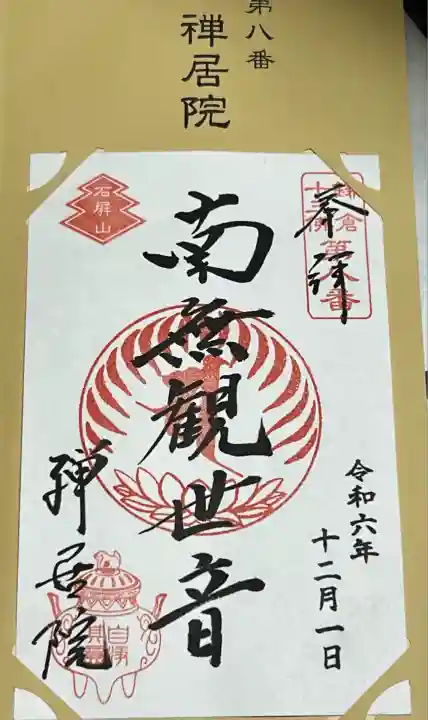 第八番
禅居院
鎌倉
十三佛
第八番
奉拝
石屏山
南無觀世音
令和六年
十二月一日
禅居院